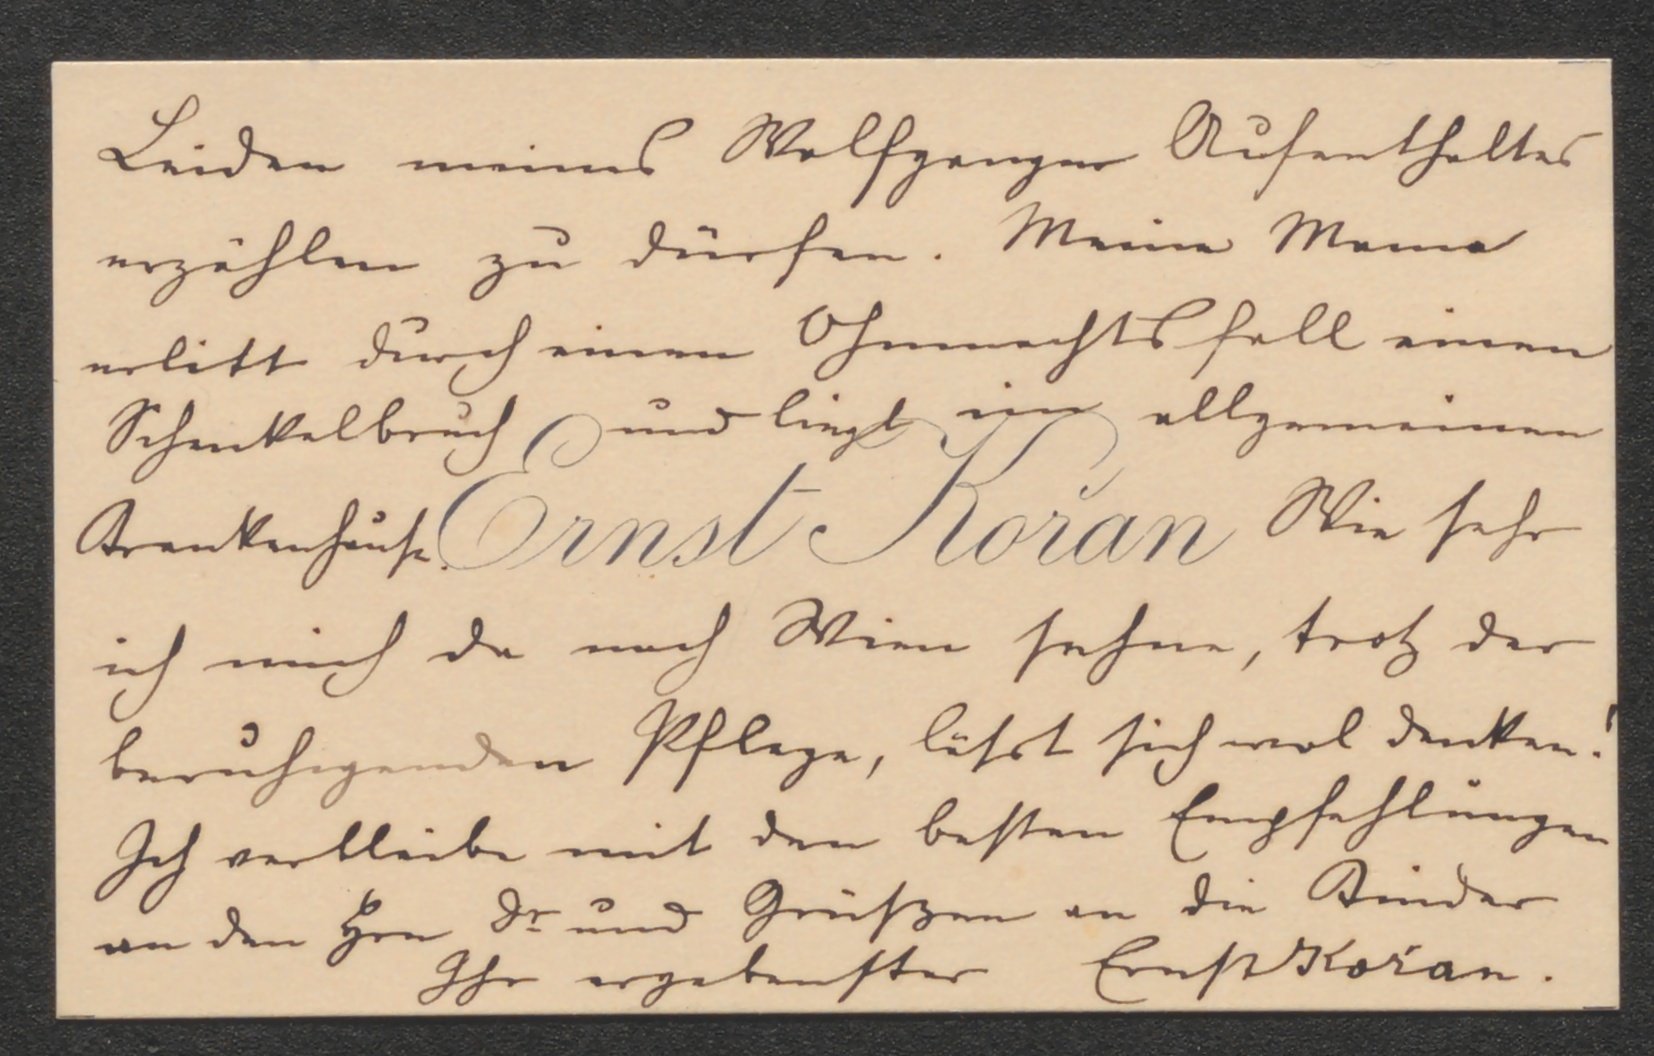 Leiden meines Wolfganger Aufenthaltes
erzählen zu dürfen. Meine Mama
erlitt durch einen Ohnmachtsfall einen
Schenkelbruch und liegt im allgemeinen
Krankenhause. Ernst Kořan Wie sehr
ich mich da nach Wien sehne, trotz der
beruhigenden Pflege, läſst sich wol denken!
Ich verbleibe mit den besten Empfehlungen
an den Hrn Dr und Grüßen an die Kinder
Ihr ergebenster Ernst Kořan.